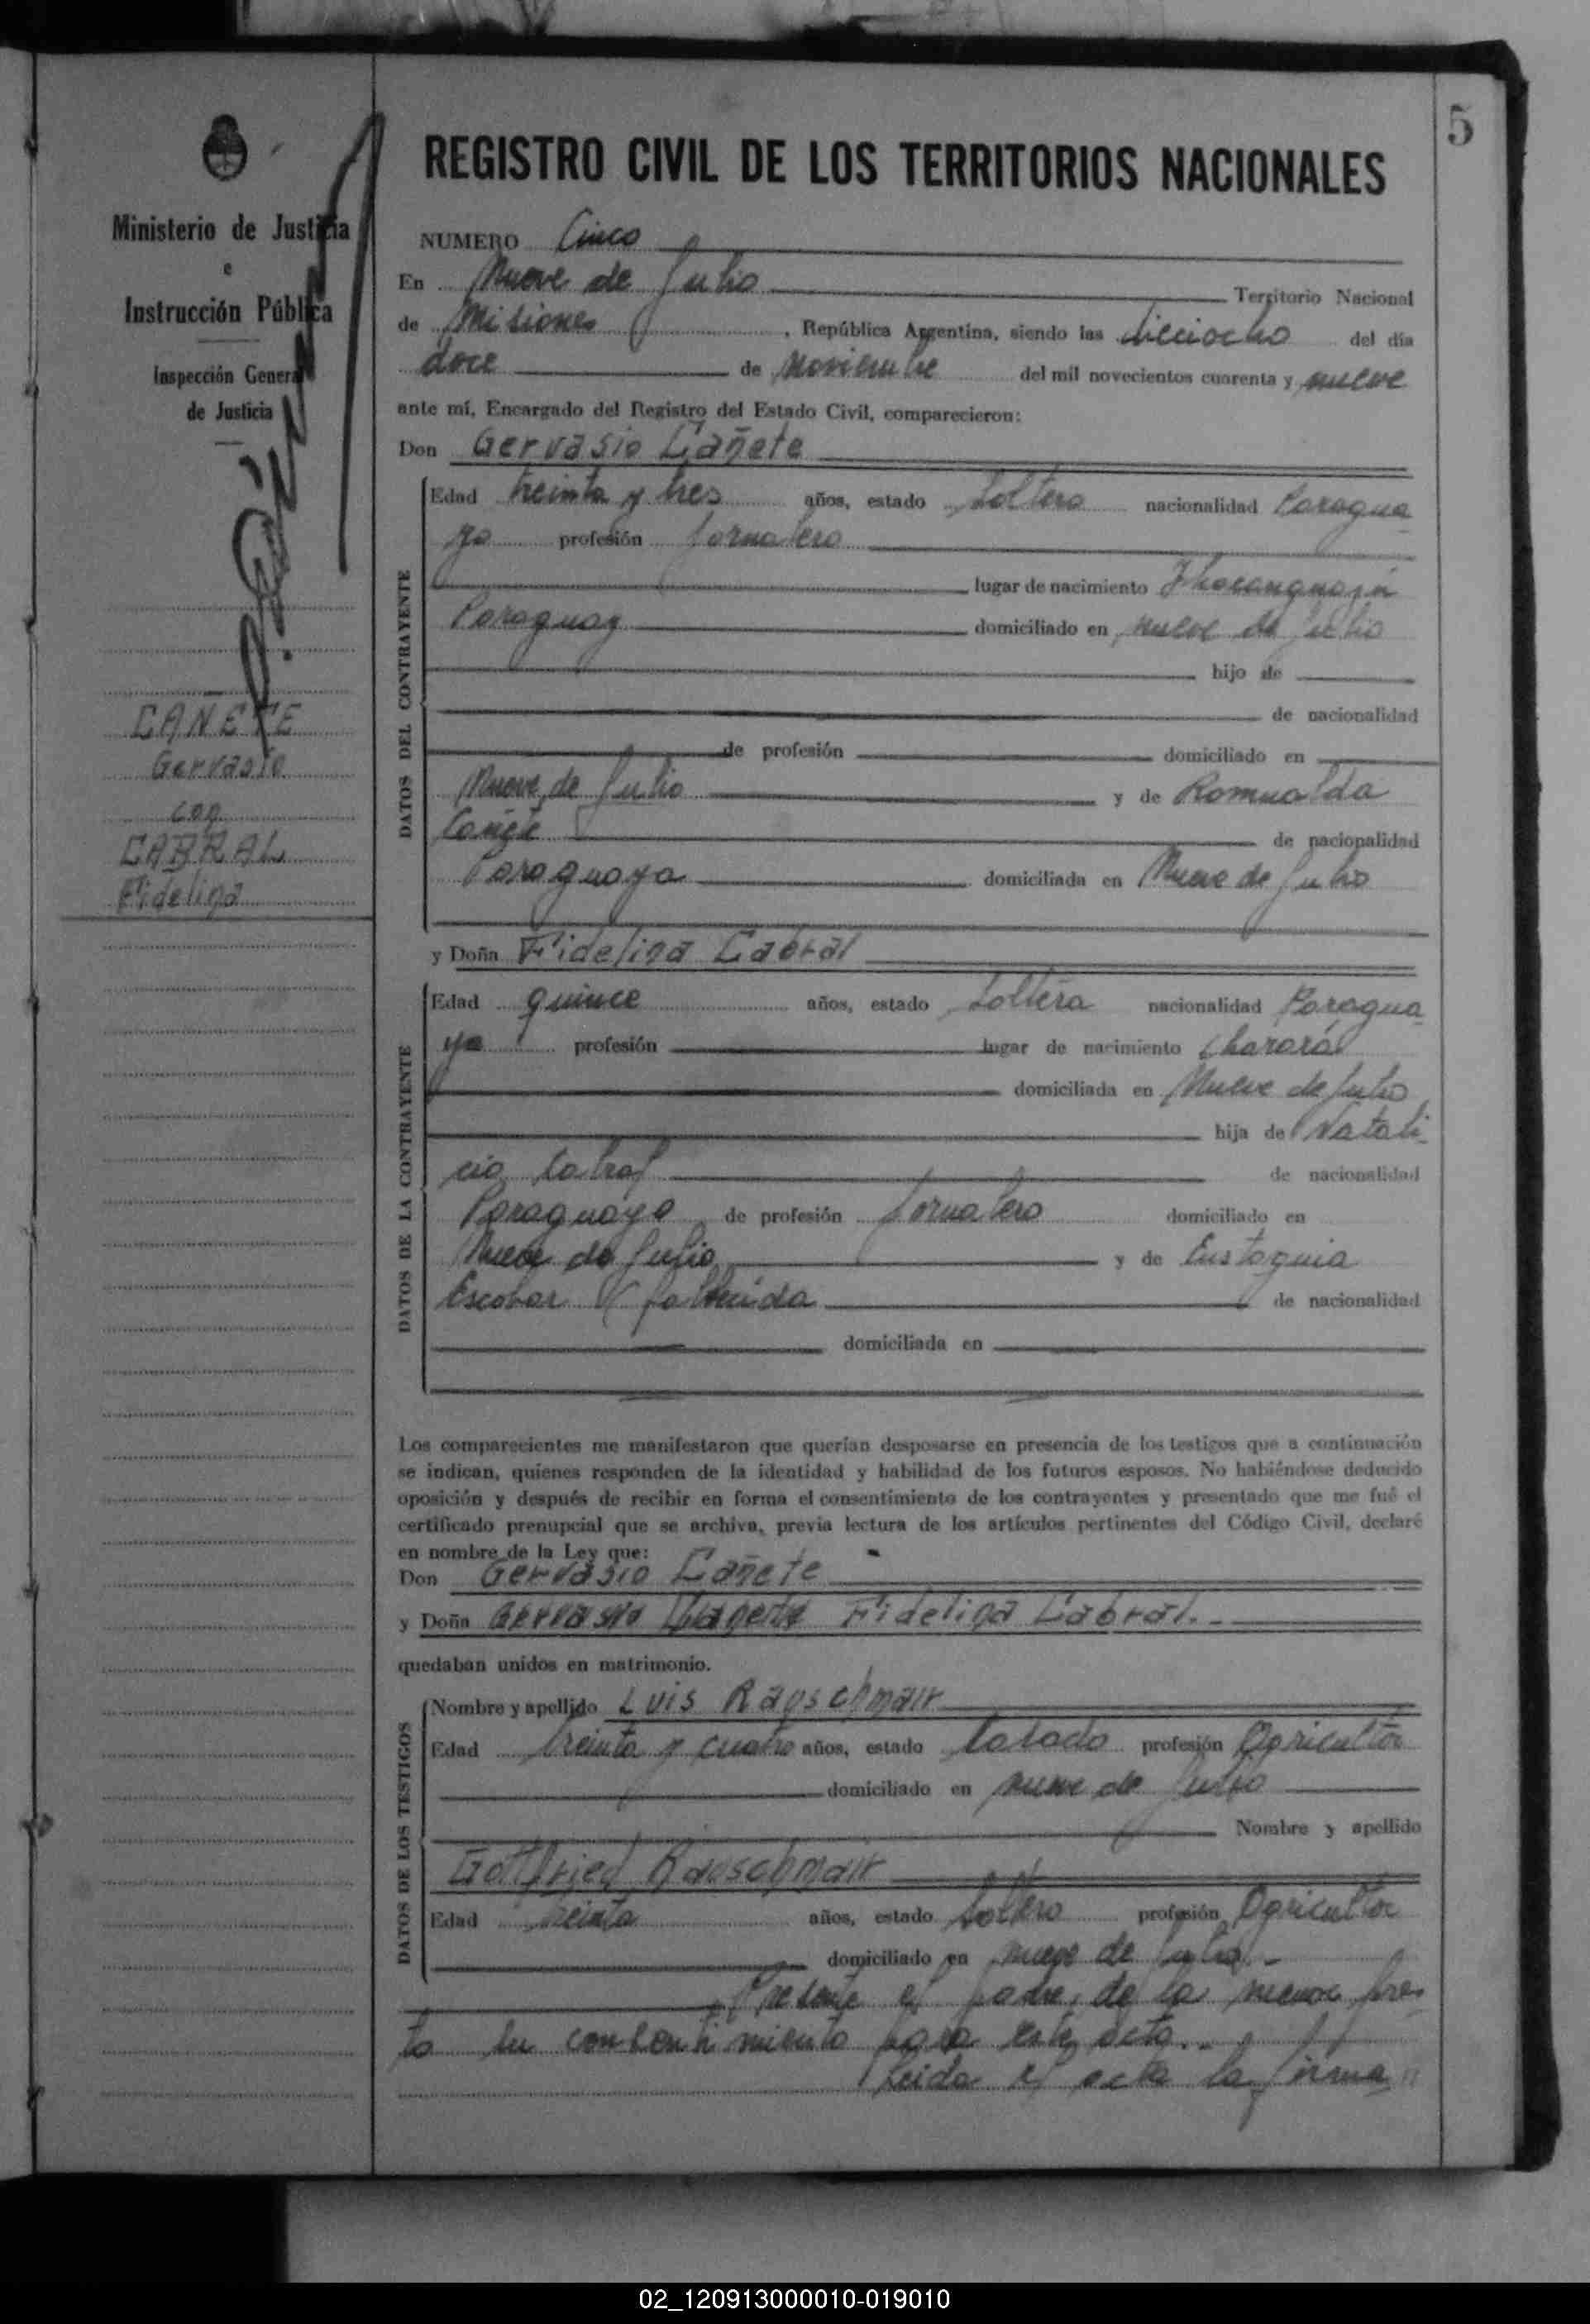 5
Ministerio de Justicia
e
Instrucción Pública
Inspección General
de Justicia
CAÑETE
Gervasio
con
CABRAL
Fidelina
REGISTRO CIVIL DE LOS TERRITORIOS NACIONALES
NUMERO Cinco
En Nueve de Julio Territorio Nacional
de Misiones, República Argentina, siendo las dieciocho del día
doce de Noviembre del mil novecientos cuarenta y nueve
ante mí, Encargado del Registro del Estado Civil, comparecieron:
Don Gervasio Cañete
DATOS DEL CONTRAYENTE
Edad treinta y tres años, estado Soltero nacionalidad Paragua
yo profesión Jornalero
lugar de nacimiento
Paraguay domiciliado en nueve de Julio
hijo de
de nacionalidad
de profesión domiciliado en
Nueve de Julio y de Romualda
Cañete de nacionalidad
Paraguaya domiciliada en Nueve de Julio
y Doña Fidelina Cabral
DATOS DE LA CONTRAYENTE
Edad quince años, estado Soltera nacionalidad Paragua
ya profesión lugar de nacimiento Charará
domiciliada en Nueve de Julio
hija de Natali
cio Cabral de nacionalidad
Paraguayo de profesión Jornalero domiciliado en
Nueve de Julio y de Eustaquia
Escobar fallecida de nacionalidad
domiciliada en
Los comparecientes me manifestaron que querían desposarse en presencia de los testigos que a continuación
se indican, quienes responden de la identidad y habilidad de los futuros esposos. No habiéndose deducido
oposición y después de recibir en forma el consentimiento de los contrayentes y presentado que me fué el
certificado prenupcial que se archiva, previa lectura de los artículos pertinentes del Código Civil, declaré
en nombre de la Ley que:
Don Gervasio Cañete
y Doña Gervasio Cañete Fidelina Cabral.-
quedaban unidos en matrimonio.
DATOS DE LOS TESTIGOS
Nombre y apellido Luis Rauschmair
Edad treinta y cuatro años, estado Casado profesión Agricultor
domiciliado en nueve de Julio
Nombre y apellido
Gottfried Rauschmair
Edad treinta años, estado Soltero profesión Agricultor
domiciliado en nueve de Julio.-
Presente el padre de la menor pres
ta su consentimiento para este acto.-
Leída el acta la firma
02_120913000010-019010